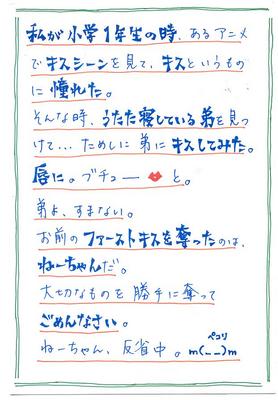 私が小学1年生の時、あるアニメ
でキスシーンを見て、キスというもの
に憧れた。
そんな時、うたた寝している弟を見つ
けて…ためしに弟にキスしてみた。
唇に。ブチュ――💋と。
弟よ、すまない。
お前のファーストキスを奪ったのは、
ねーちゃんだ。
大切なものを勝手に奪って
ごめんなさい。
ペコリ
ねーちゃん、反省中。m(__)m